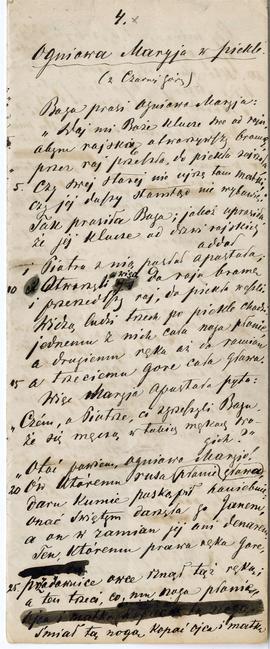 4.
Ogniowa Maryja w piekle.
(z Czarnéj góry)
Boga prosi Ogniowa Maryja:
"Daj mi Boże klucze twe od raju,
abym rajską otworzywszy bramę
przez raj przeszła, do piekła zajrzała
5. Czy swej starej nie ujrzę tam matki,
czy jej duszy stamtąd nie wybawię."
Tak prosiła Boga; jakoż uprosiła
że jej klucze od drzwi rajskich
oddał
i Piotra z nią posłał apostoła,
10 Otworzyli do raju bramę
i przeszedłszy raj, do piekła weszli.
Widzą ludzi trzech po piekle chodzi
jednemu z nich cała noga płonie,
a drugiemu ręka aż do ramion
15 a trzeciemu gore cała głowa.
Więc Maryja Apostoła pyta:
"Czém, o Piotrze, co zgrzeszyli Bogu,
że się męczą w takich mękach
gich?"
"Otoć powiem, ogniowa Maryjo!
20 Ów któremu płonie głowa
daru kumie poskąpił haniebnie
onać świętym darzyła go Janem,
a on w zamian jej ani denarem.
Ten, któremu prawa ręka gore,
25 owce rznął tą ręką,
a ten trzeci, co mu noga płonie,
śmiał tą nogą kopać ojca i matkę